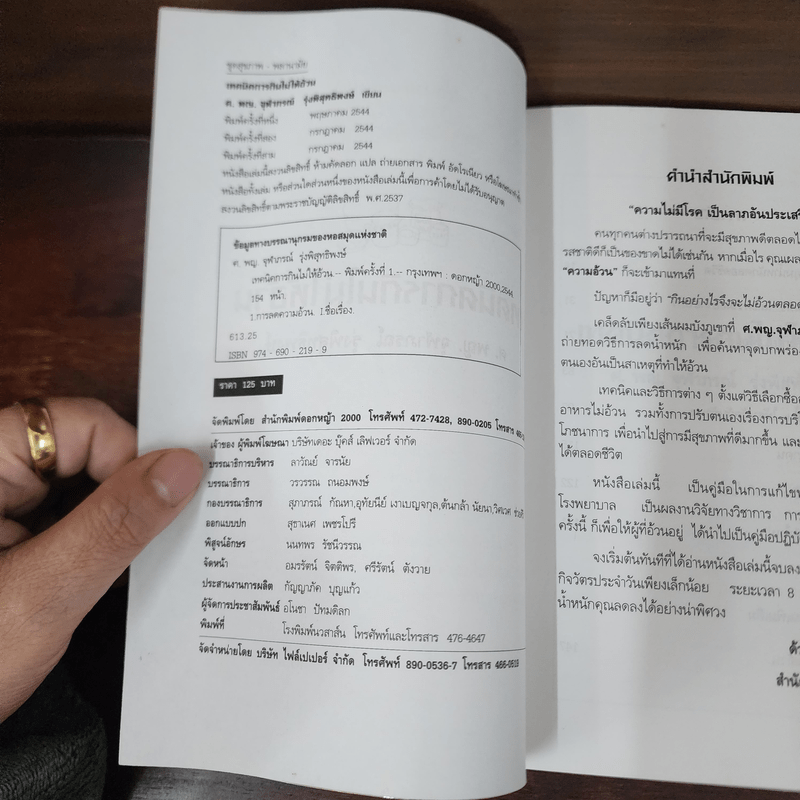 ชุดสุขภาพ - พลานามัย
เทคนิคการกินไม่ให้อ้วน
ศ. พญ. จุฬาภรณ์ รุ่งพิสุทธิพงษ์ เขียน
พิมพ์ครั้งที่หนึ่ง พฤษภาคม 2544
พิมพ์ครั้งที่สอง กรกฎาคม 2544
พิมพ์ครั้งที่สาม กรกฎาคม 2544
หนังสือเล่มนี้สงวนลิขสิทธิ์ ห้ามคัดลอก แปล ถ่ายเอกสาร พิมพ์ อัดโรเนียว
หนังสือทั้งเล่ม หรือส่วนใดส่วนหนึ่งของหนังสือเล่มนี้เพื่อการค้าโดยไม่ได้รับอนุญาต
สงวนลิขสิทธิ์ตามพระราชบัญญัติลิขสิทธิ์ พ.ศ.2537
ข้อมูลทางบรรณานุกรมของหอสมุดแห่งชาติ
ศ. พญ. จุฬาภรณ์ รุ่งพิสุทธิพงษ์
เทคนิคการกินไม่ให้อ้วน.-- พิมพ์ครั้งที่ 1.-- กรุงเทพฯ : ดอกหญ้า 2000,2544.
154 หน้า.
1.การลดความอ้วน. 1.ชื่อเรื่อง.
613.25
ISBN 974 - 690 - 219 - 9
ราคา 125 บาท
จัดพิมพ์โดย สำนักพิมพ์ดอกหญ้า 2000 โทรศัพท์ 472-7428, 890-0205 โทรสาร
เจ้าของ ผู้พิมพ์โฆษณา บริษัทเดอะ บุ๊คส์ เลิฟเวอร์ จำกัด
บรรณาธิการบริหาร ลาวัณย์ จารนัย
บรรณาธิการ วรวรรณ ถนอมพงษ์
กองบรรณาธิการ สุภาภรณ์ กัณหา,อุทัยนีย์ เงาเบญจกุล,ต้นกล้า นัยนา,วิศเวศ
ออกแบบปก สุธาเนศ เพชรโปรี
พิสูจน์อักษร นนทพร รัชนีวรรณ
จัดหน้า อมรรัตน์ จิตติพร, ศรีรัตน์ ตังวาย
ประสานงานการผลิต กัญญาภัค บุญแก้ว
ผู้จัดการประชาสัมพันธ์ อโนชา ปัทมดิลก
พิมพ์ที่ โรงพิมพ์นวสาส์น โทรศัพท์และโทรสาร 476-4647
จัดจำหน่ายโดย บริษัท ไฟล์เปเปอร์ จำกัด โทรศัพท์ 890-0536-7 โทรสาร 466-0519
คำนำสำนักพิมพ์
"ความไม่มีโรค เป็นลาภอันประเสริ
คนทุกคนต่างปรารถนาที่จะมีสุขภาพดีตลอดไ
รสชาติดีก็เป็นของขาดไม่ได้เช่นกัน หากเมื่อไร คุณเผล
"ความอ้วน" ก็จะเข้ามาแทนที่
ปัญหาก็มีอยู่ว่า "กินอย่างไรจึงจะไม่อ้วนตลอด
เคล็ดลับเพียงเส้นผมบังภูเขาที่ ศ.พญ.จุฬาภ
ถ่ายทอดวิธีการลดน้ำหนัก เพื่อค้นหาจุดบกพร่อ
ตนเองอันเป็นสาเหตุที่ทำให้อ้วน
เทคนิคและวิธีการต่าง ๆ ตั้งแต่วิธีเลือกซื้อ
อาหารไม่อ้วน รวมทั้งการปรับตนเองเรื่องการบริ
โภชนาการ เพื่อนำไปสู่การมีสุขภาพที่ดีมากขึ้น และ
ได้ตลอดชีวิต
หนังสือเล่มนี้ เป็นคู่มือในการแก้ไข
โรงพยาบาล เป็นผลงานวิจัยทางวิชาการ การ
ครั้งนี้ ก็เพื่อให้ผู้ที่อ้วนอยู่ ได้นำไปเป็นคู่มือปฏิบั
จงเริ่มต้นทันทีที่ได้อ่านหนังสือเล่มนี้จบลง
กิจวัตรประจำวันเพียงเล็กน้อย ระยะเวลา 8
น้ำหนักคุณลดลงได้อย่างน่าพิศวง
ด้ว
สำนัก